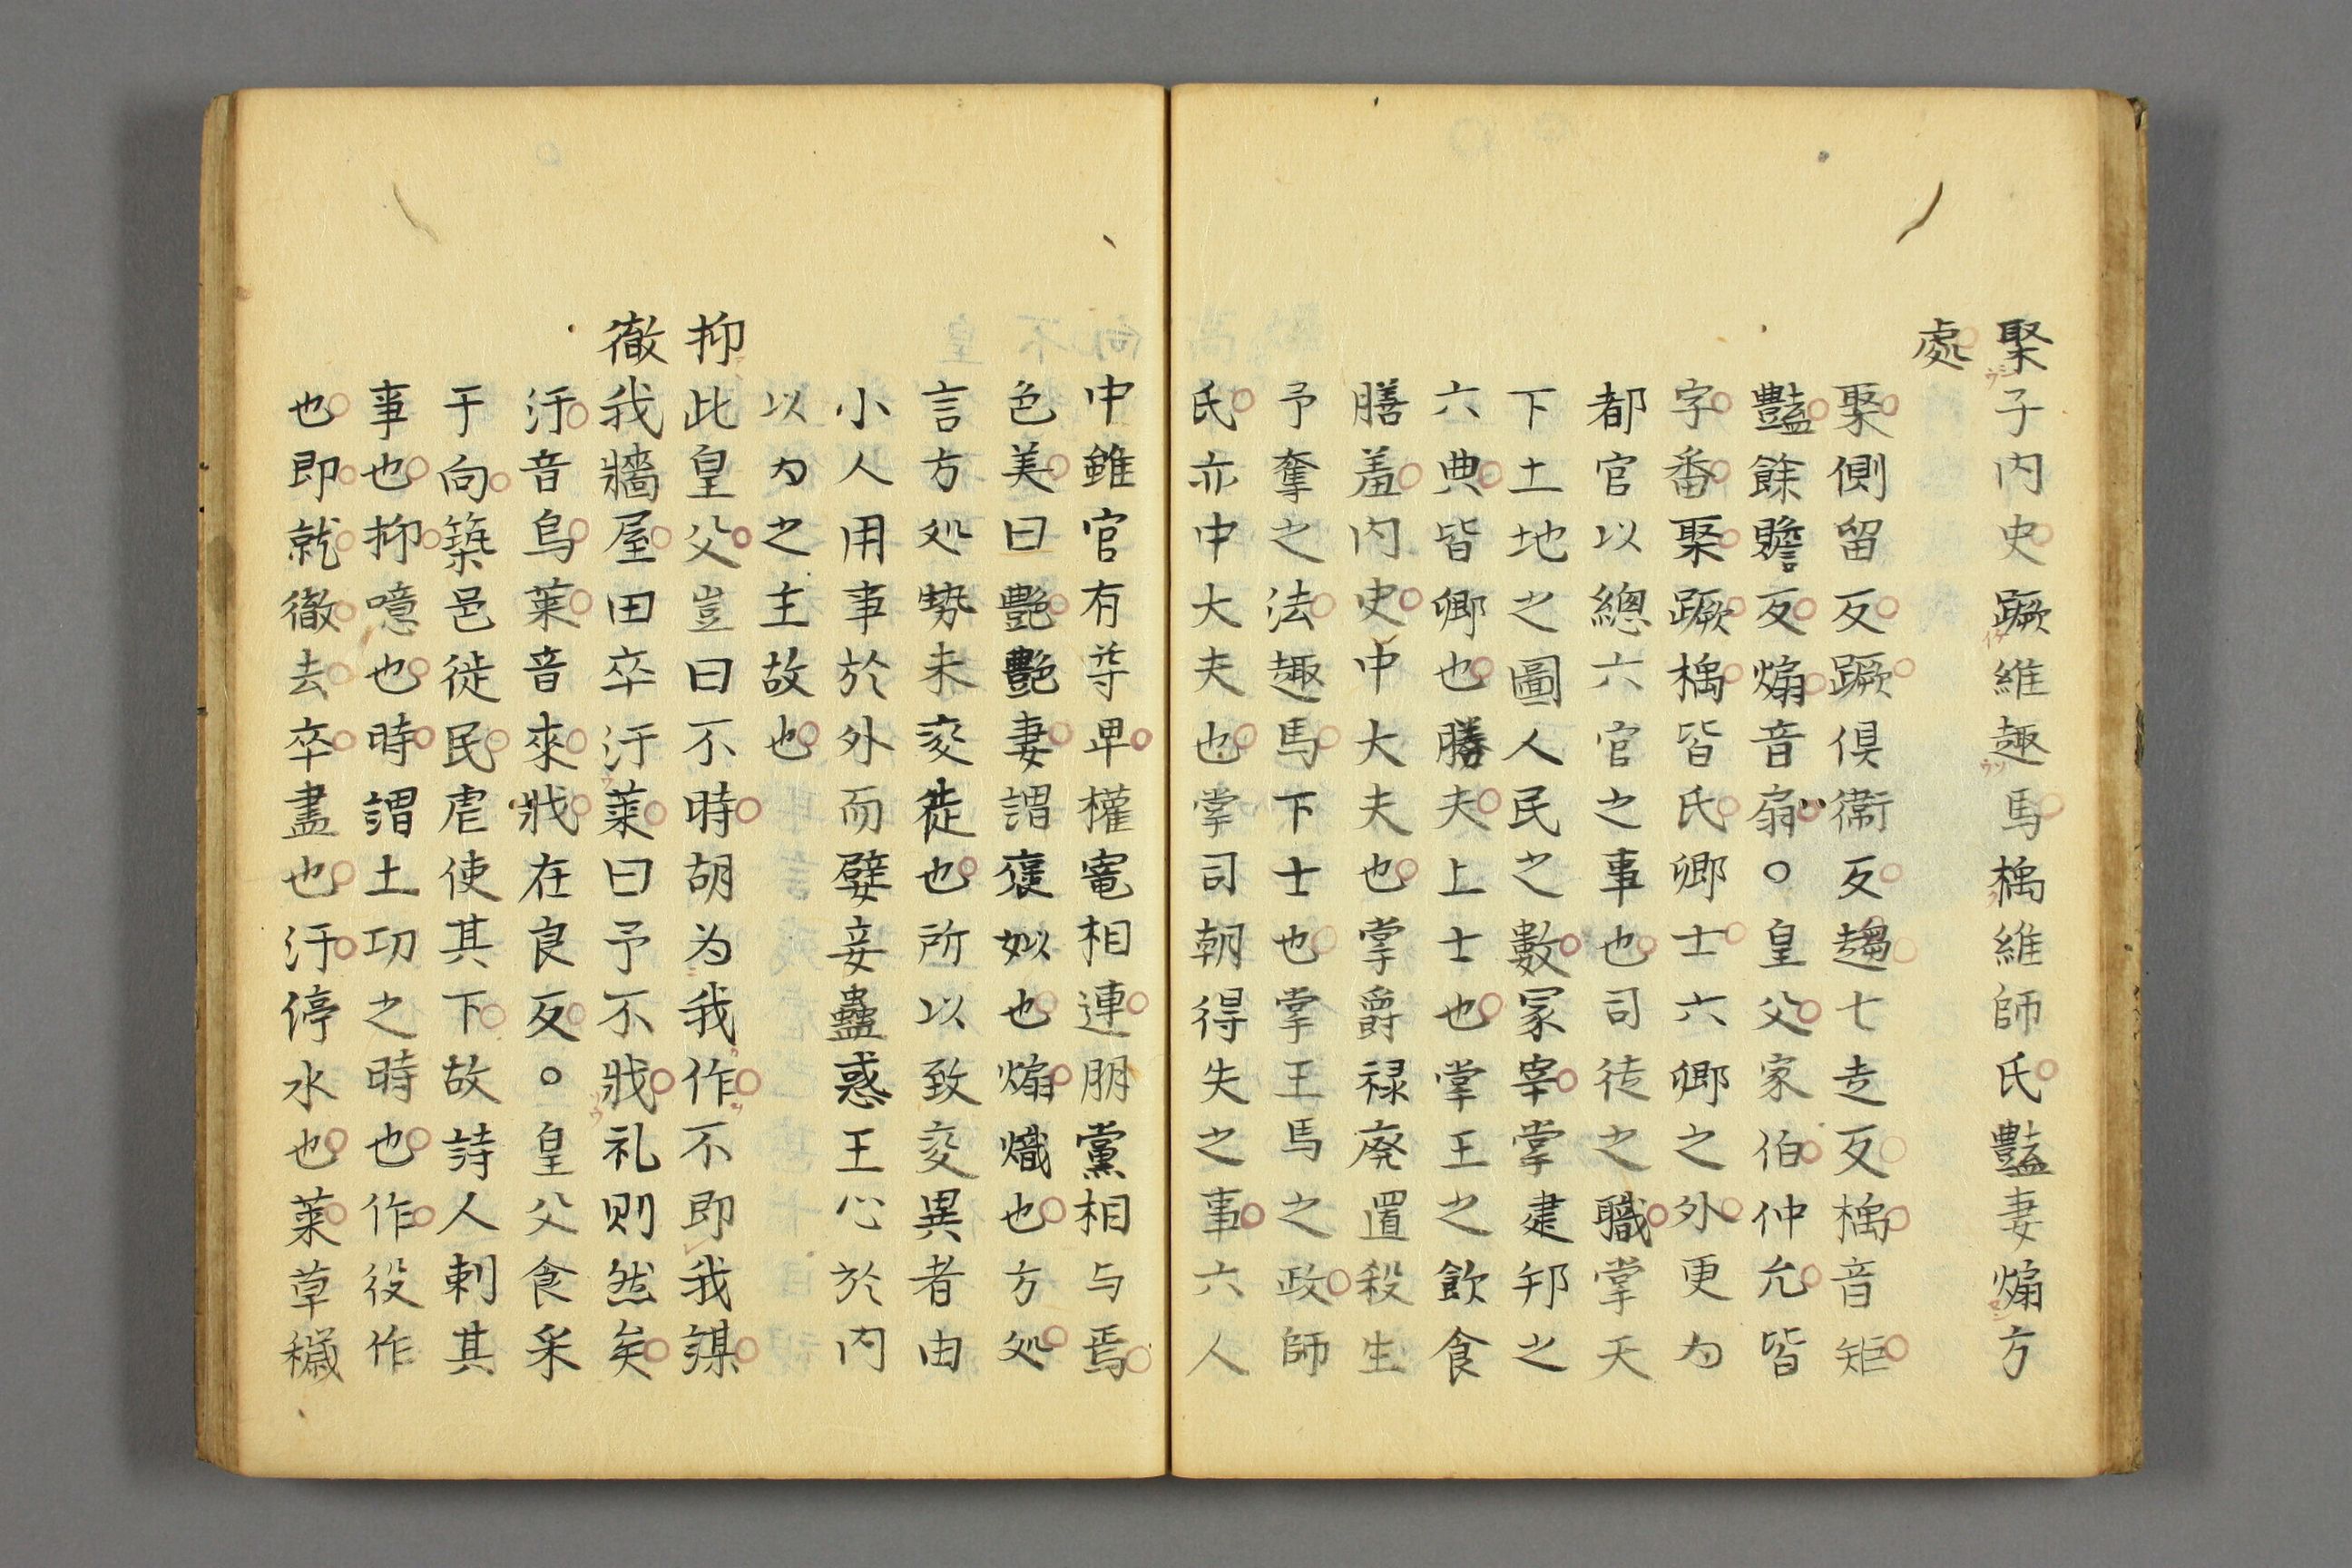 聚子内史蹶維趣馬楀維師氏豔妻煽方
處
聚側留反蹶倶衞反趨七走反楀音矩
豔餘贍反煽音扇○皇父家伯仲允皆
字番聚蹶楀皆氏卿士六卿之外更为
都官以總六官之事也司徒之職掌天
下土地之圖人民之數冢宰掌建邦之
六典皆卿也膳夫上士也掌王之飲食
膳羞内史中大夫也掌爵禄廃置殺生
予奪之法趣馬下士也掌王馬之政師
氏亦中大夫也掌司朝得失之事六人
中雖官有䓁卑權寵相連朋黨相与焉
色美曰艶艶妻謂襃姒也煽熾也方処
言方処㔟未変徙也所以致変異者由
小人用事於外而嬖妾蠱惑王心於内
以为之主故也
抑此皇父豈曰不時胡为我作不即我謀
徹我牆屋田卒汙萊曰予不戕礼则然矣
汙音烏萊音來戕在良反○皇父食采
于向築邑徙民虐使其下故詩人刺其
事也抑噫也時謂土功之時也作役作
也即就徹去卒盡也汙停水也萊草穢